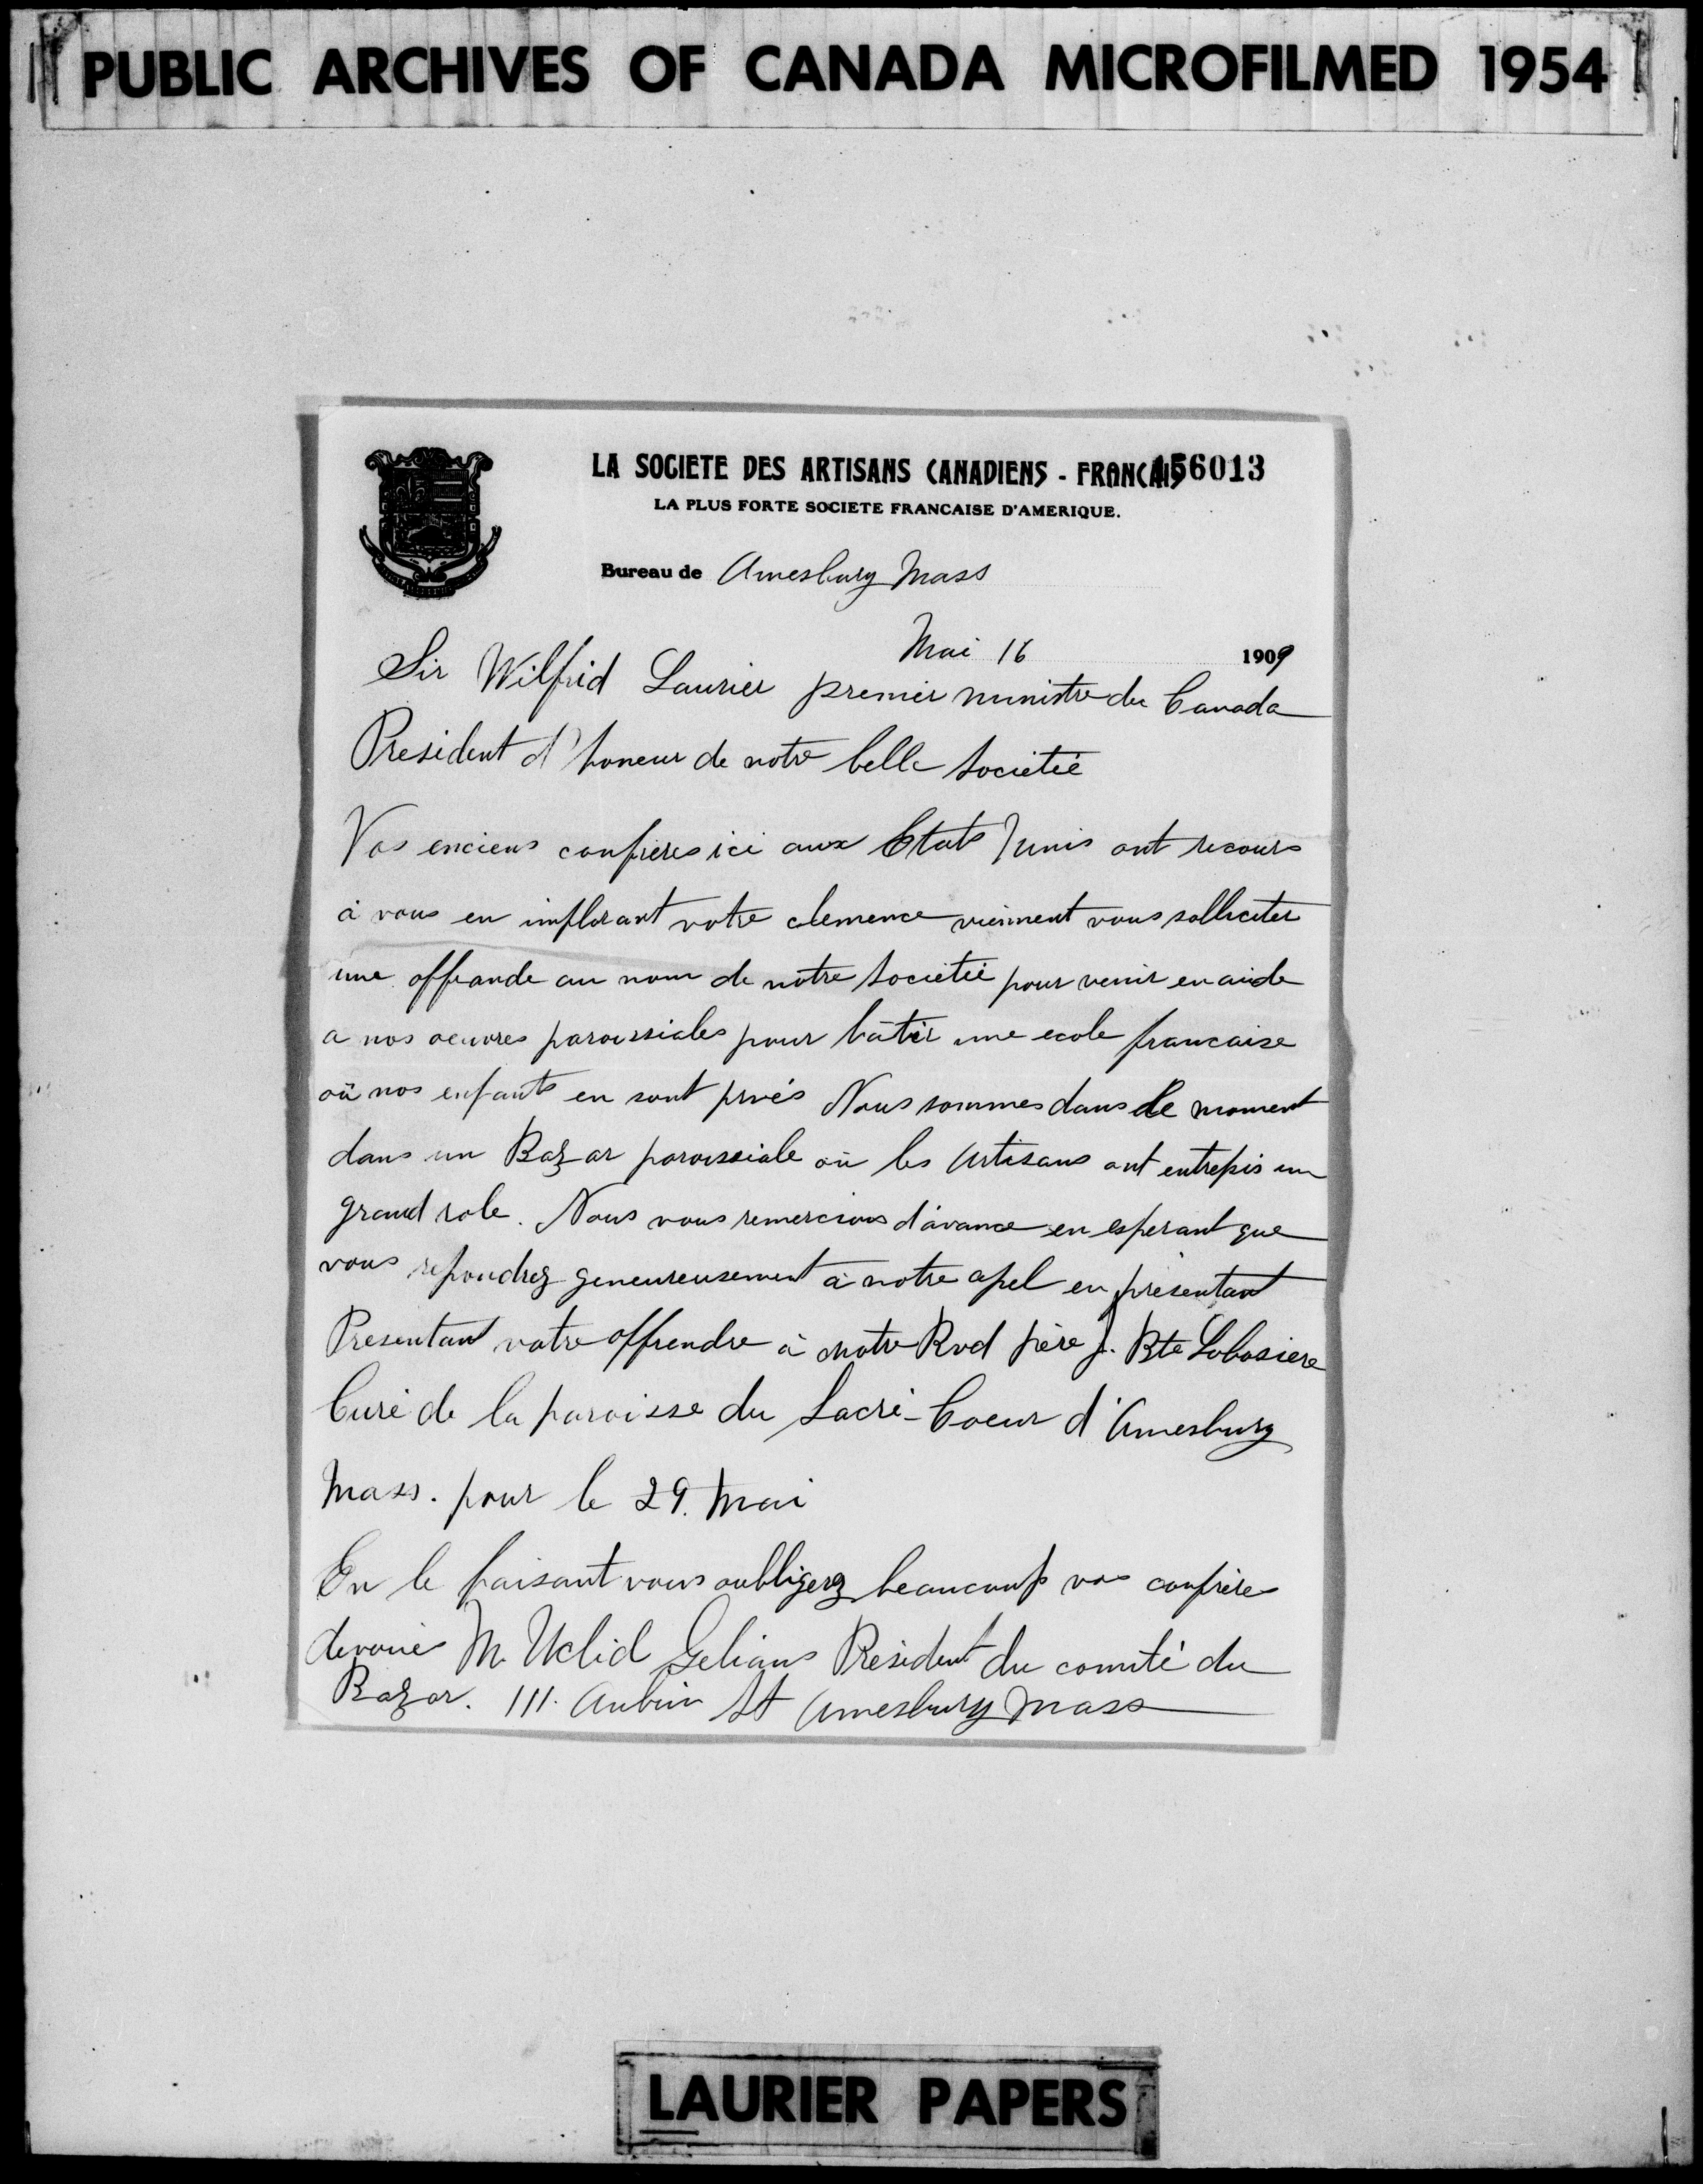 PUBLIC ARCHIVES OF CANADA MICROFILMED 1954
LA SOCIETE DES ARTISANS CANADIENS - FRANCAIS 156013
LA PLUS FORTE SOCIETE FRANCAISE D'AMERIQUE.
Bureau de Amesbury Mass
Mai 16 1909
Sir Wilfrid Laurier premier ministre du Canada
President d'honeur de notre belle Societée
Vos enciens confreres ici aux Etats Junis ont recours
à vous en implorant votre clemence viennent vous solliciter
une offrande au nom de notre Societée pour venir en aide
a nos oeuvres paroissiales pour bâtir une ecole francaise
où nos enfants en sont privés Nous sommes dans le moment
dans un Bazar paroissiale où les Artisans ont entrepis un
grand role. Nous vous remercions d'avance en esperant que
vous repondrez geneureusement à notre apel en présentant
Presentant votre offrendre à notre Rvd père J. Bte Labosiere
Curé de la paroisse du Sacré-Coeur d'Amesbury
Mass. pour le 29. Mai
En le faisant vous oubligerez beaucoup vos confrères
devoués M. Uclid Gelians Président du comité du
Bazar. 111. Aubin St Amesbury Mass
LAURIER PAPERS